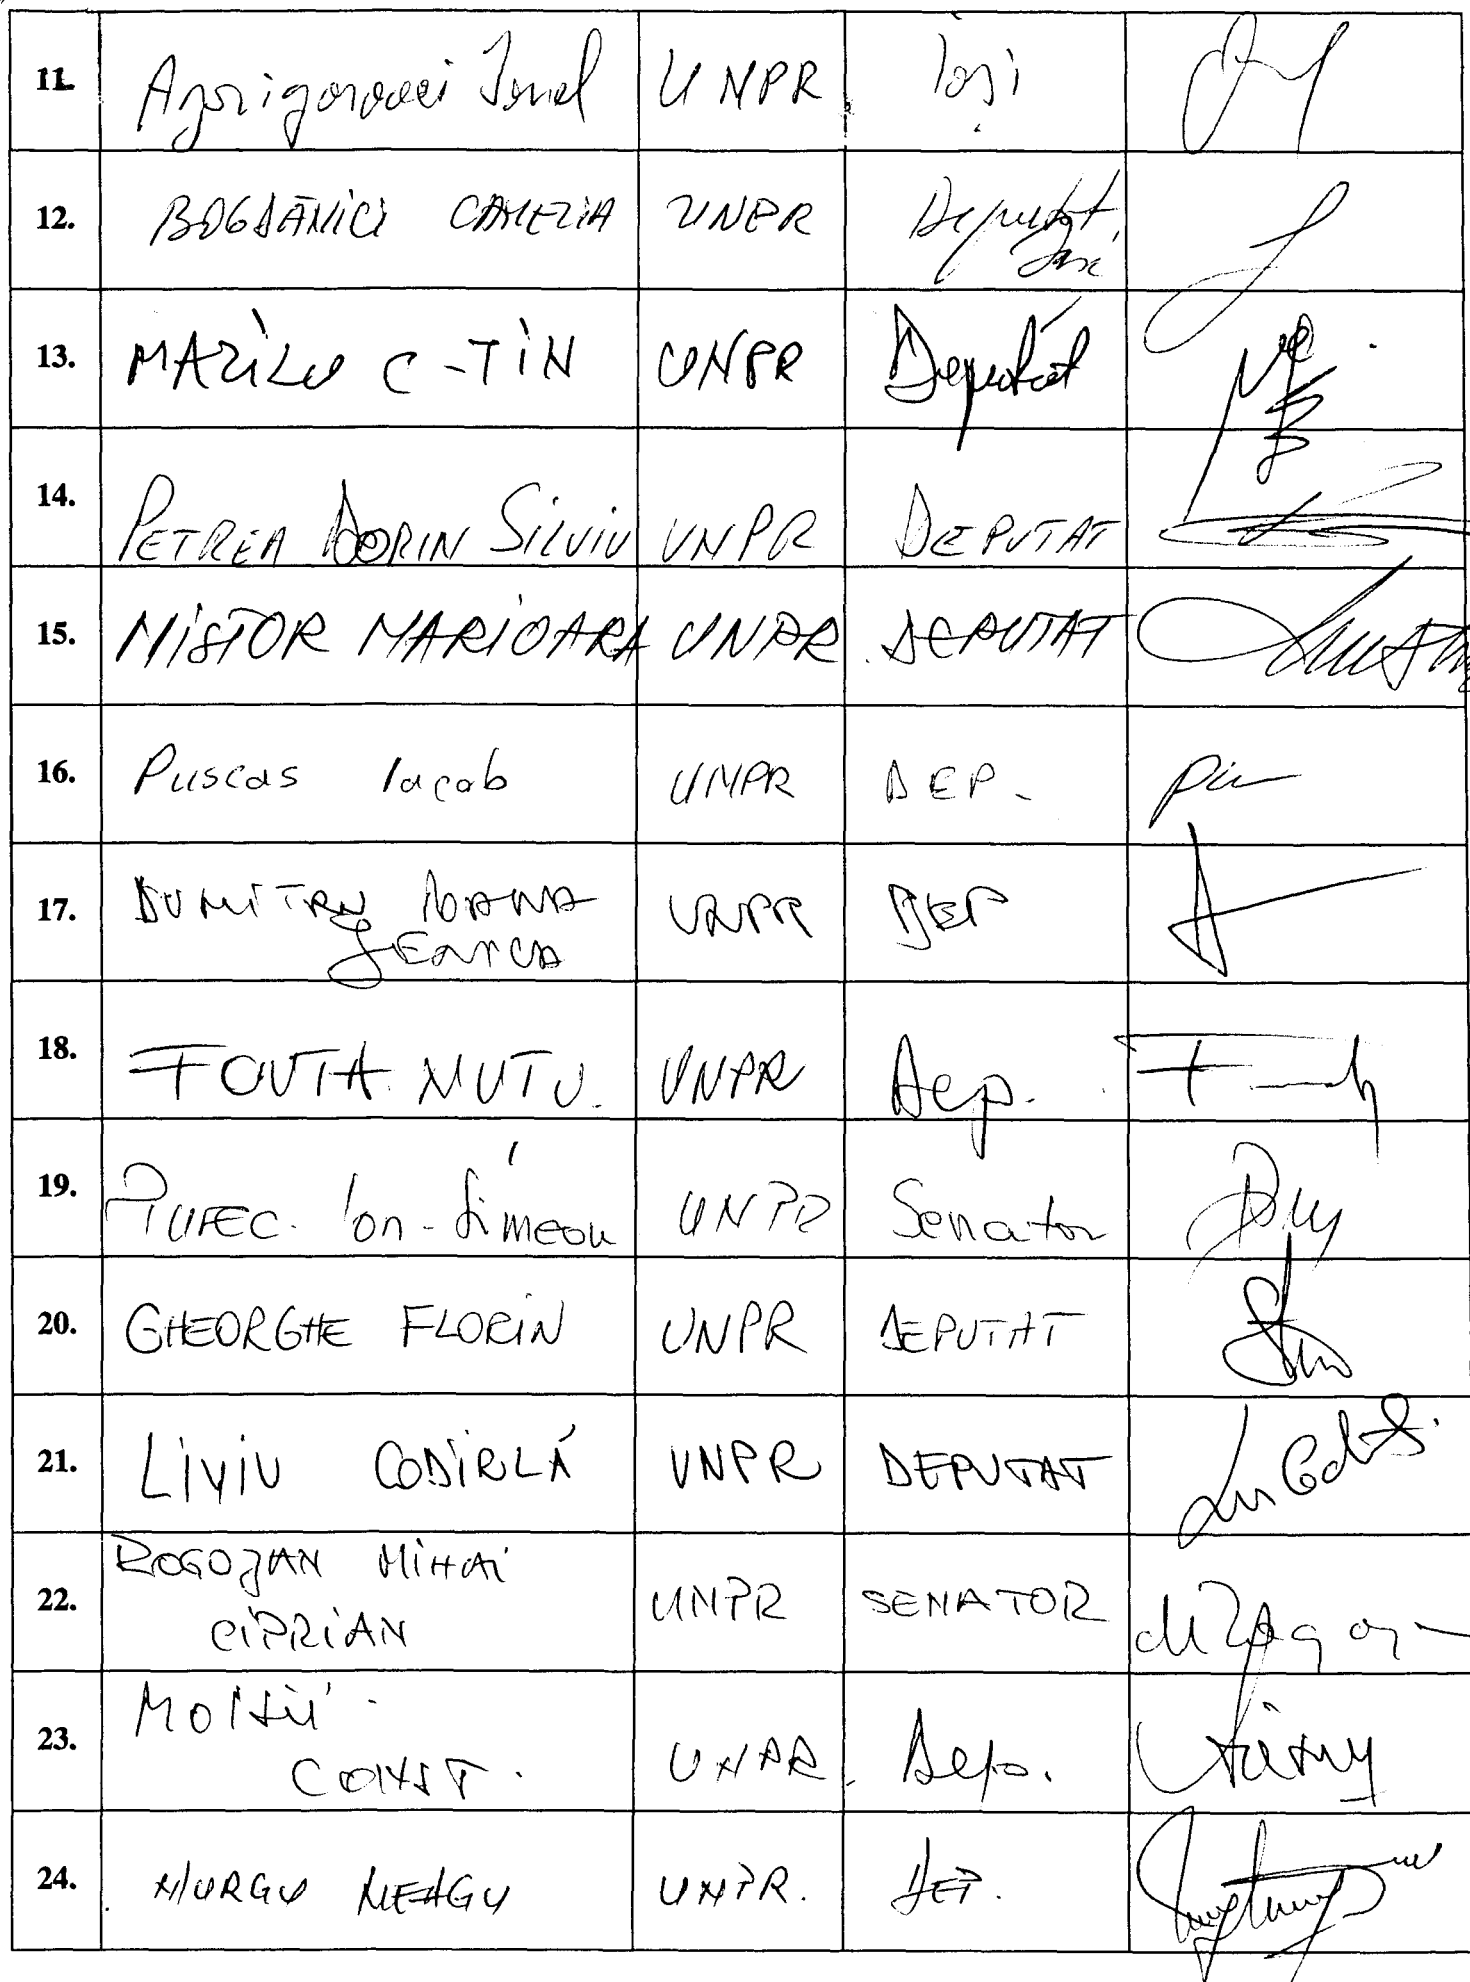 11. Agrigoroaei Ionel UNPR Iași
12. BOGDĂNICI CAMELIA UNPR Deputat Iasi
13. MAZILU C-TIN UNPR Deputat
14. PETREA DORIN SILVIU UNPR DEPUTAT
15. NISTOR MARIOARA UNPR DEPUTAT
16. Puscas Iacob UNPR DEP.
17. DUMITRU IOANA UNPR DEP
JENICA
18. FOUTA NUTU. UNPR Dep.
19. PUFEC. Ion-Simeon UNPR Senator
20. GHEORGHE FLORIN UNPR DEPUTAT
21. LIVIU CODÎRLĂ UNPR DEPUTAT
ROGOJAN MIHAI
22. CIPRIAN UNPR SENATOR
MOISII
23. CONST. UNPR. Dep.
24. MURGU NEAGU UNPR. DEP.